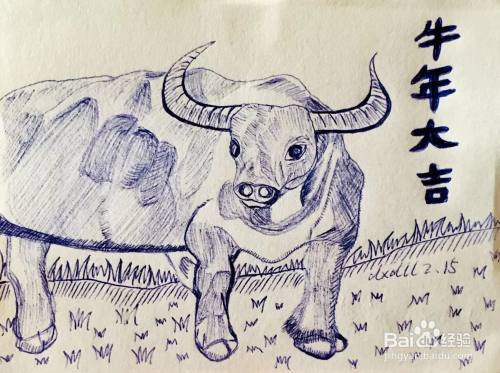 牛年大吉
2.15
Baidu经验
jingyan.baidu.com